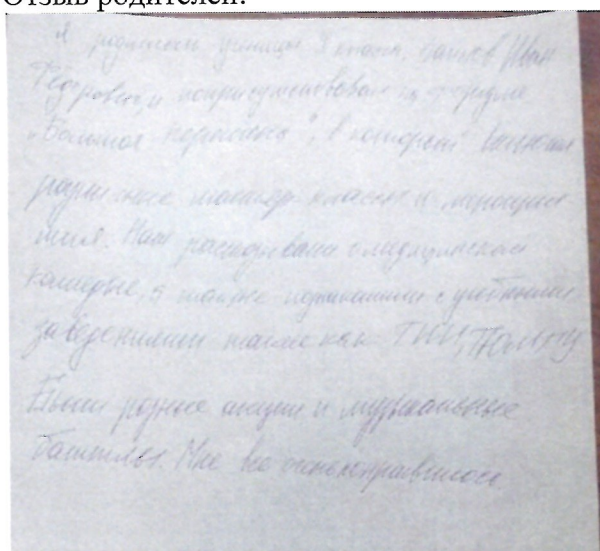 Отзыв родителей:
Я родитель ученицы 9 класса, Иван
Фёдорович, поприсутствовал на форуме
"Большая перемена", в который
разные мастер классы и мероприя
тия. Нам рассказывали о медицинской
а также познакомили с учебными
заведениями такие как ТИУ, ТюмГМУ
Были разные акции и музыкальные
баттлы. Мне все очень понравилось.